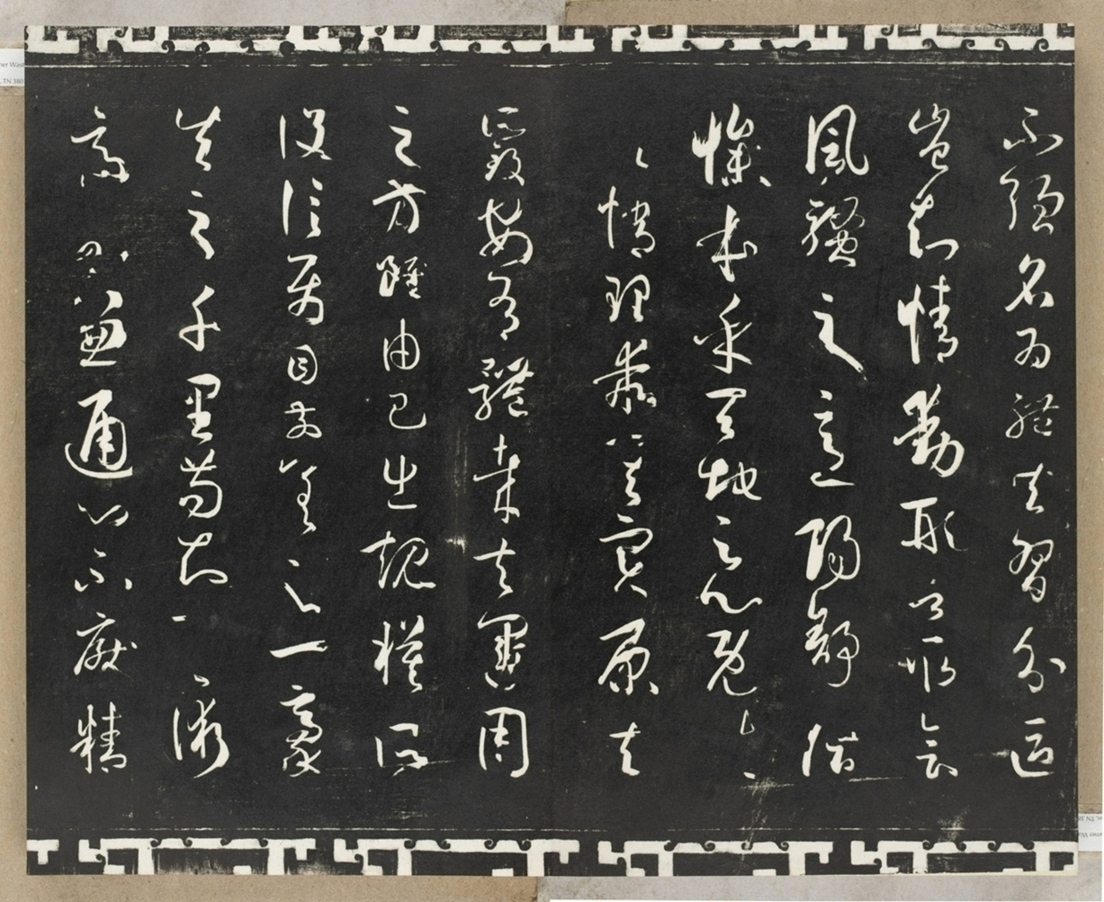 不強名為體共習分區
豈知情動形言取會
風騷之意陽舒陰
慘本乎天地之心既失
其情理乖其實原夫
所致安有體哉夫運用
之方雖由己出規模所
設信屬目前差之一豪
失之千里苟知其術
適可兼通心不厭精